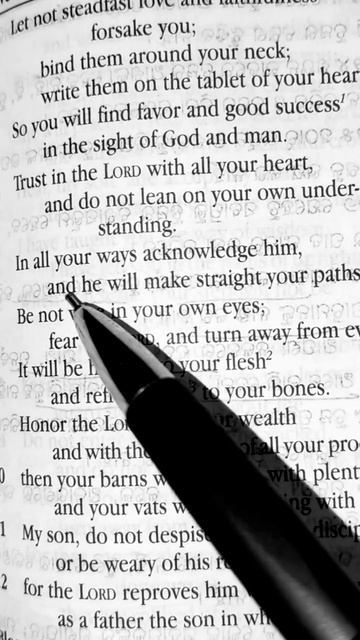 Let not steadfast love and faithfulness
forsake you;
bind them around your neck;
write them on the tablet of your hear
So you will find favor and good success¹
in the sight of God and man.
Trust in the LORD with all your heart,
and do not lean on your own under-
standing.
In all your ways acknowledge him,
and he will make straight your paths
Be not in your own eyes;
fear and turn away from ev
It will be your flesh²
and ref to your bones.
Honor the Lor wealth
and with the of all your pro
0 then your barns w with plent
and your vats w ng with
1 My son, do not despise discip
or be weary of his re
2 for the LORD reproves him
as a father the son in wh